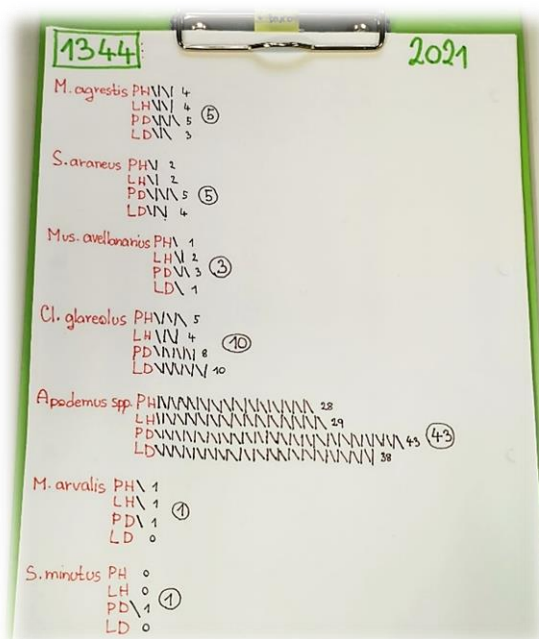 1344 2021
M. agrestis PH \\\\ 4
LH \\\\ 4
PD \\\\\ 5 (5)
LD \\\ 3
S. araneus PH \\ 2
LH \\ 2
PD \\\\\ 5 (5)
LD \\\\ 4
Mus. avellanarius PH \ 1
LH \\ 2
PD \\\ 3 (3)
LD \ 1
Cl. glareolus PH \\\\\ 5
LH \\\\ 4 (10)
PD \\\\\\\\ 8
LD \\\\\\\\\\ 10
Apodemus spp. PH 28
LH 29
PD 43 (43)
LD 38
M. arvalis PH \ 1
LH \ 1
PD \ 1 (1)
LD 0
S. minutus PH 0
LH 0
PD \ 1 (1)
LD 0